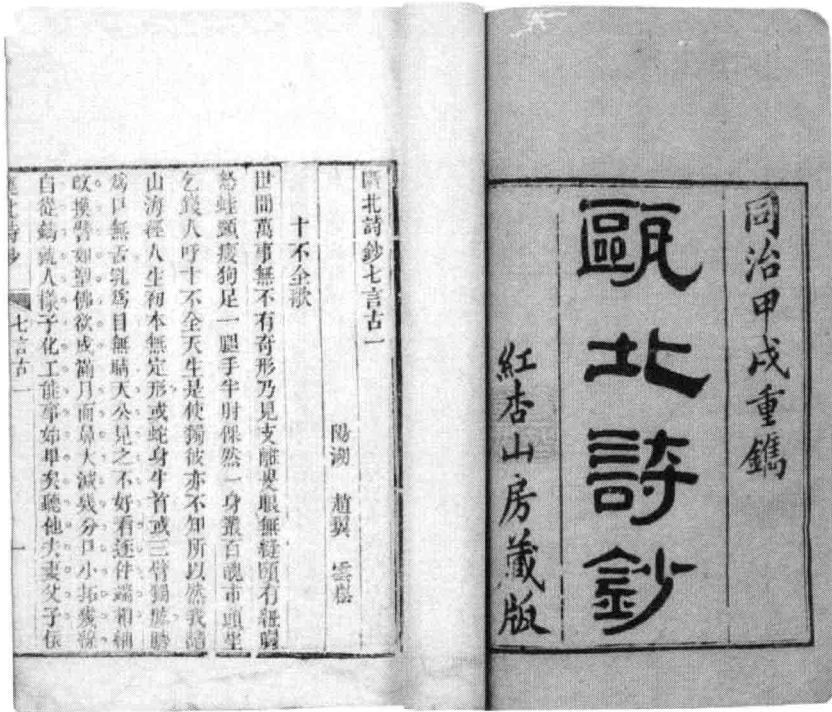 同治甲戌重鐫
甌北詩鈔
紅杏山房藏版
甌北詩鈔七言古一
陽湖 趙翼 雲崧
十不全歌
世間萬事無不有奇形乃見支離叟眼無縫頤有
怒蛙頸癭狗足一腿手半肘倮然一身叢百醜市頭坐
乞錢人呼十不全天生是使獨彼亦不知所以然我讀
山海經人生初本無定形或蛇身牛首或三臂獨
為口無舌乳為目無瞞天公見之不好看逐件端相細
改換譬如塑佛欲成滿月面鼻大減幾分口小拓幾線
自從鑄就人樣子化工能事始畢矣聽他夫妻父子依
甌北詩鈔 七言古一 一